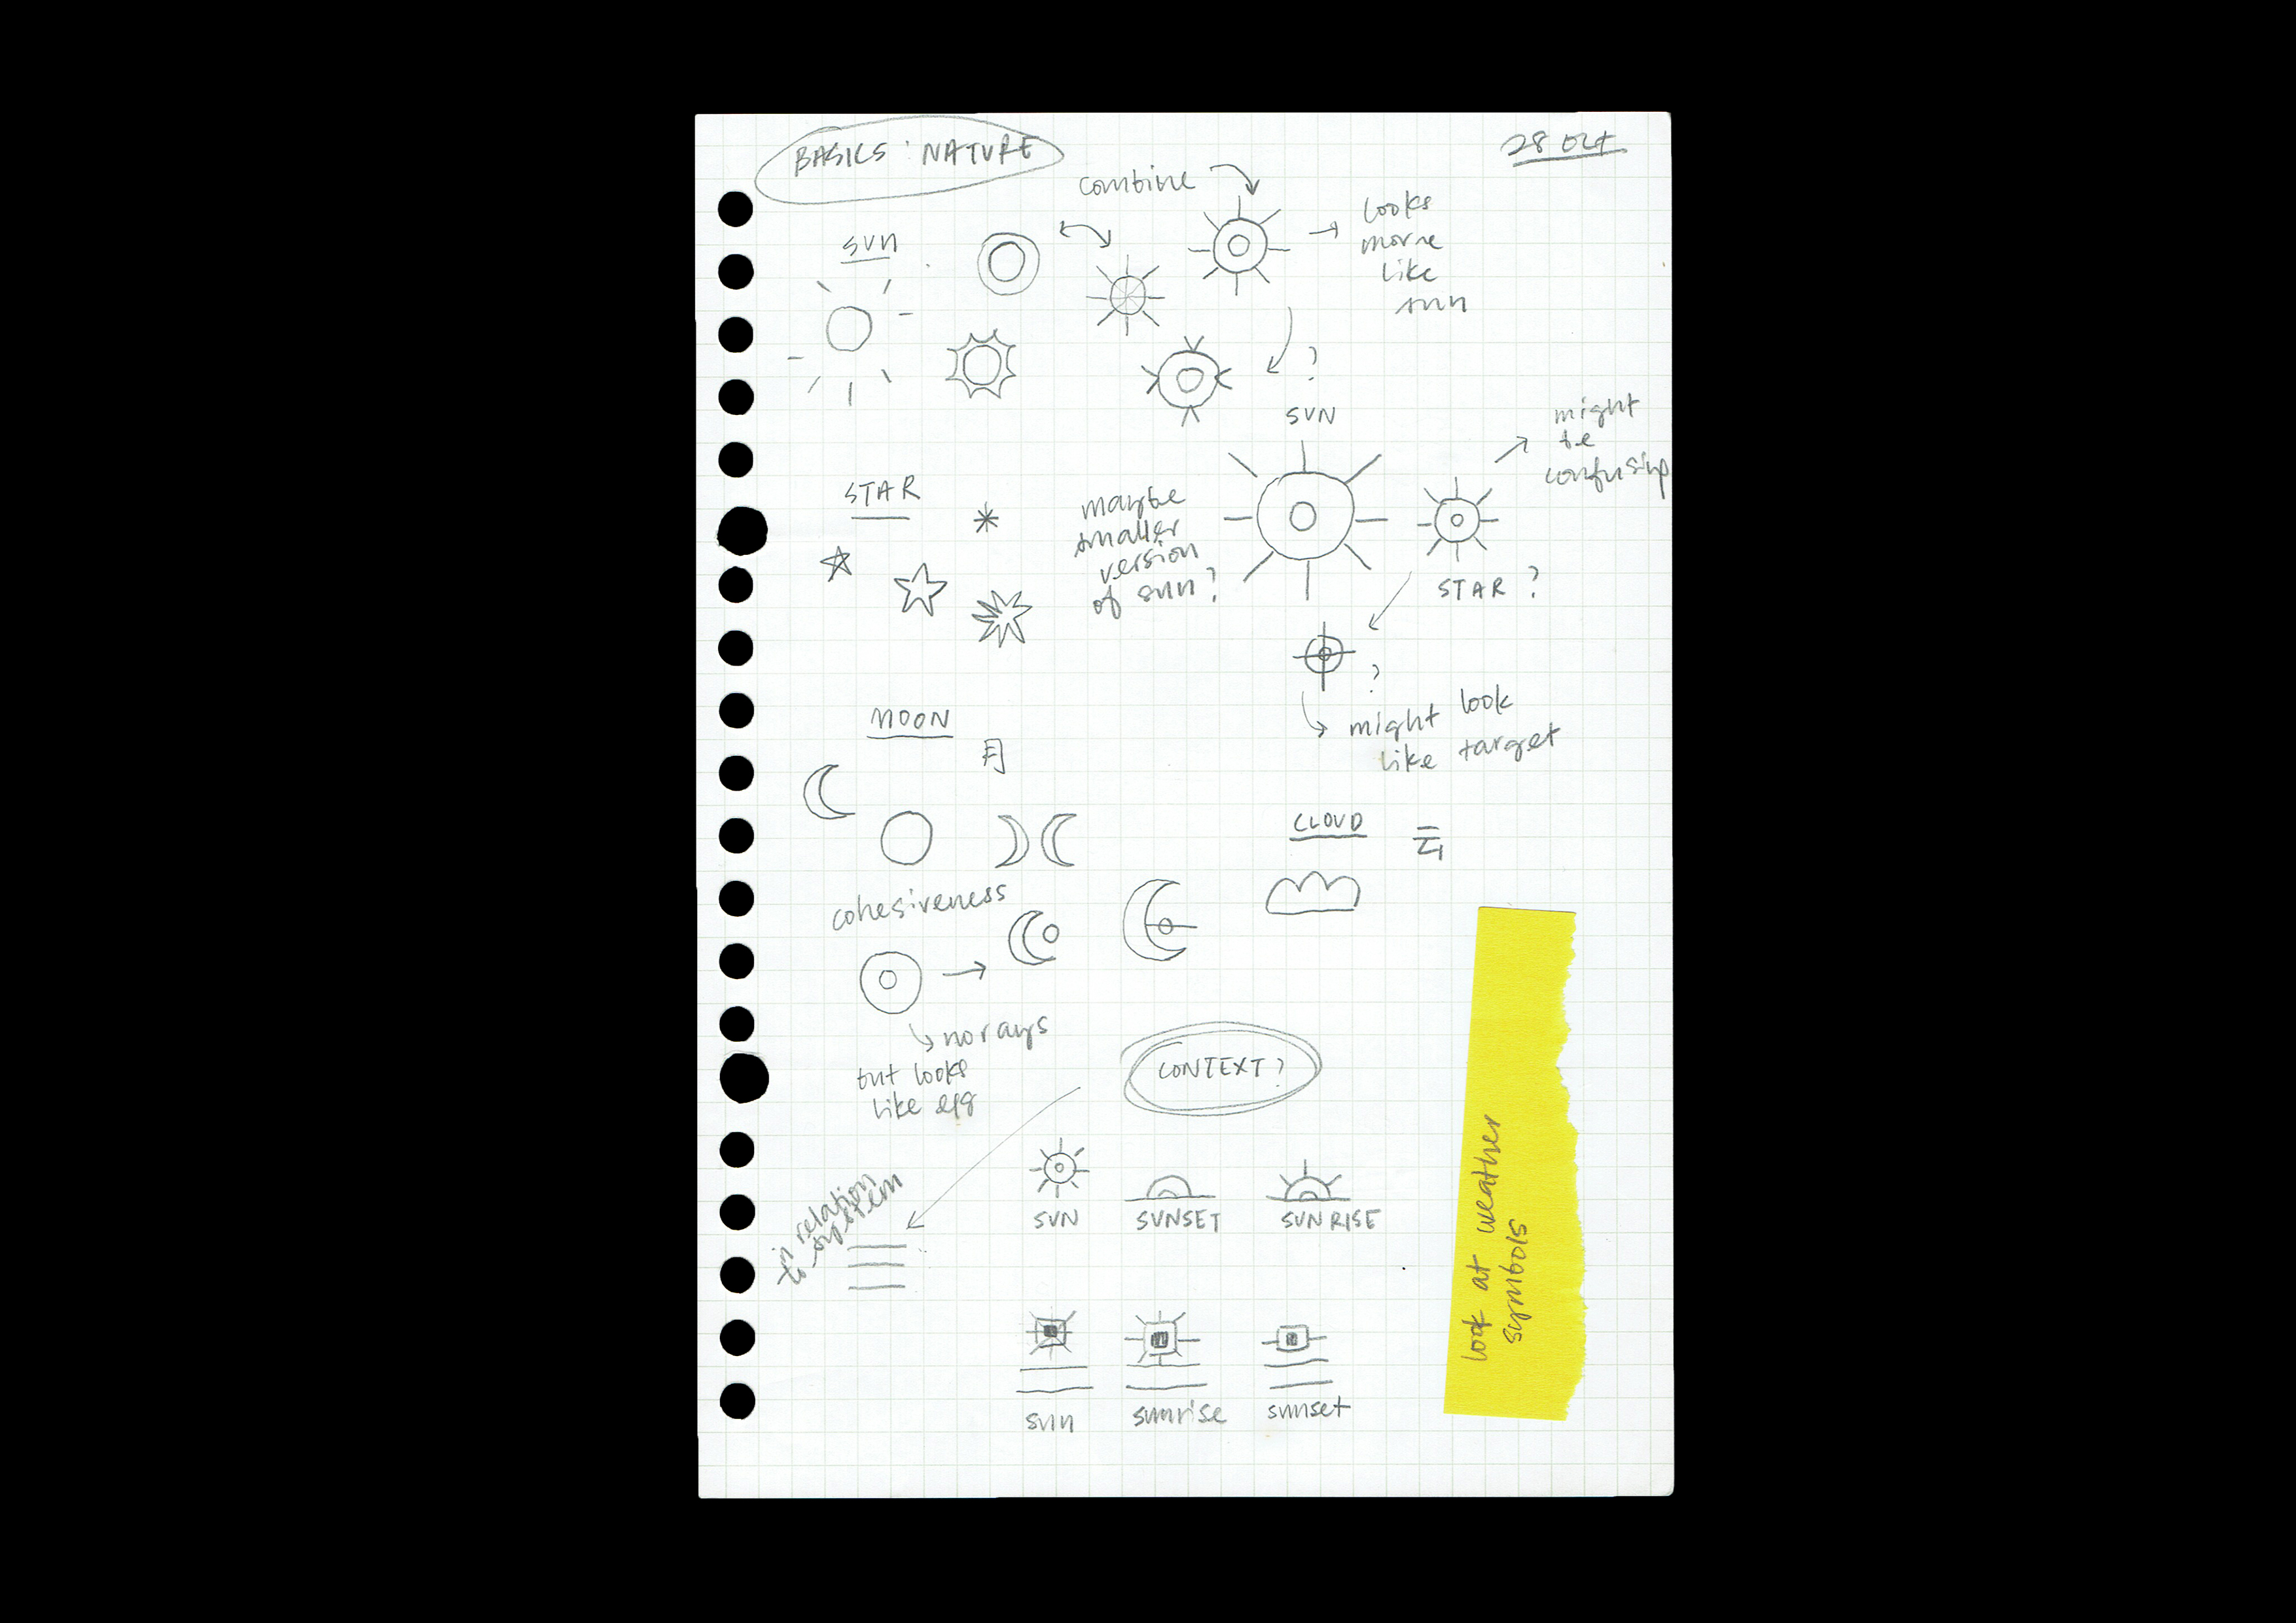 BASICS : NATURE
28 Oct
combine
SUN
looks
more
like
sun
?
SUN
might
be
confusing
STAR
maybe
smaller
version
of sun?
STAR ?
?
might look
like target
MOON
月
CLOUD
云
cohesiveness
no rays
but looks
like egg
CONTEXT?
in relation
to system
SUN
SUNSET
SUNRISE
sun
sunrise
sunset
look at weather
symbols